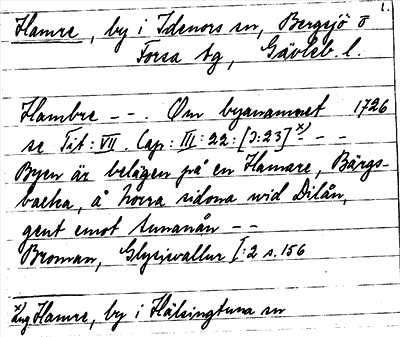 1.
Hamre, by i Idenors sn, Bergsjö o
Forsa tg, Gävleb. l.
Hambre -- . Om byanamnet 1726
se Tit: VII. Cap: III: 22: [ɔ: 23] x) - -
Byen är belägen på en Hamare, Bärgs-
backa, å Norra sidona wid Dilån,
gent emot tunanån --
Broman, Glysisvallur I: 2 s. 156
x) ang Hamre, by i Hälsingtuna sn